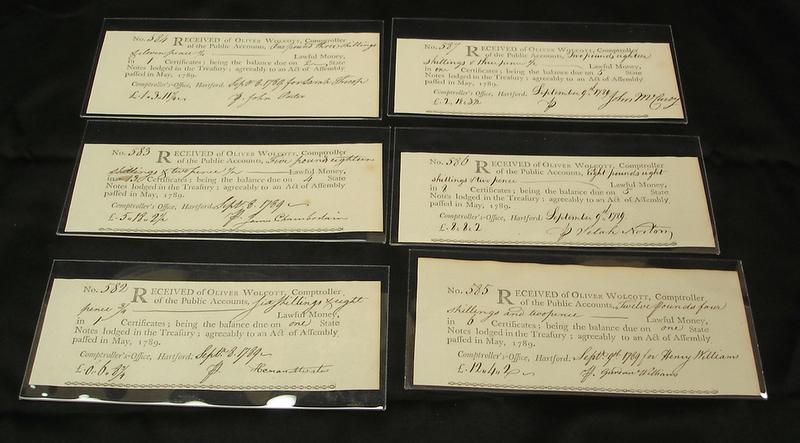 No. 584 RECEIVED of OLIVER WOLCOTT, Comptroller
of the Public Accounts, two pound three shillings
& eleven pence Lawful Money,
in 1 Certificates; being the balance due on State
Notes lodged in the Treasury; agreeably to an Act of Assembly
passed in May, 1789.
Comptroller's-Office, Hartford. Sept 8 1789 for Sarah Throop
John Porter
No. 583 RECEIVED of OLIVER WOLCOTT, Comptroller
of the Public Accounts, Five pound eighteen
shillings & two pence Lawful Money,
in Certificates; being the balance due on 4 State
Notes lodged in the Treasury; agreeably to an Act of Assembly
passed in May, 1789.
Comptroller's-Office, Hartford. Sept 8. 1789
£.5.18.2 James Chamberlain
No. 582 RECEIVED of OLIVER WOLCOTT, Comptroller
of the Public Accounts, six shillings & eight
pence 3/4 Lawful Money,
in 1 Certificates; being the balance due on one State
Notes lodged in the Treasury; agreeably to an Act of Assembly
passed in May, 1789.
Comptroller's-Office, Hartford. Sept. 8. 1789
£.0.6.8 3/4
No. 587 RECEIVED of OLIVER WOLCOTT, Comptroller
of the Public Accounts, Two pound eighteen
shillings & three pence Lawful Money,
in one Certificates; being the balance due on 3 State
Notes lodged in the Treasury; agreeably to an Act of Assembly
passed in May, 1789.
Comptroller's-Office, Hartford. September 9th 1789
John McCurdy
No. 586 RECEIVED of OLIVER WOLCOTT, Comptroller
of the Public Accounts, Eight pounds eight
shillings & two pence Lawful Money,
in 2 Certificates; being the balance due on 5 State
Notes lodged in the Treasury; agreeably to an Act of Assembly
passed in May, 1789.
Comptroller's-Office, Hartford. September 9th 1789.
£.8.8.2 Selah Norton
No. 585 RECEIVED of OLIVER WOLCOTT, Comptroller
of the Public Accounts, Twelve Pounds four
shillings and two pence Lawful Money,
in 6 Certificates; being the balance due on one State
Notes lodged in the Treasury; agreeably to an Act of Assembly
passed in May, 1789.
Comptroller's-Office, Hartford. Sept. 9th 1789 for Henry Williams
£.12.4.2 Williams